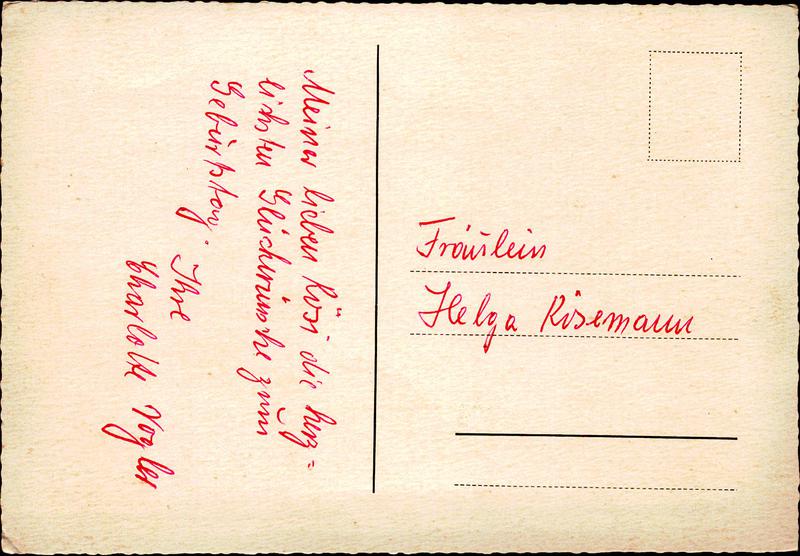 Meiner lieben Rösi die herz=
lichsten Glückwünsche zum
Geburtstag.
Ihre
Charlotte Vogler
Fräulein
Helga Rösemann